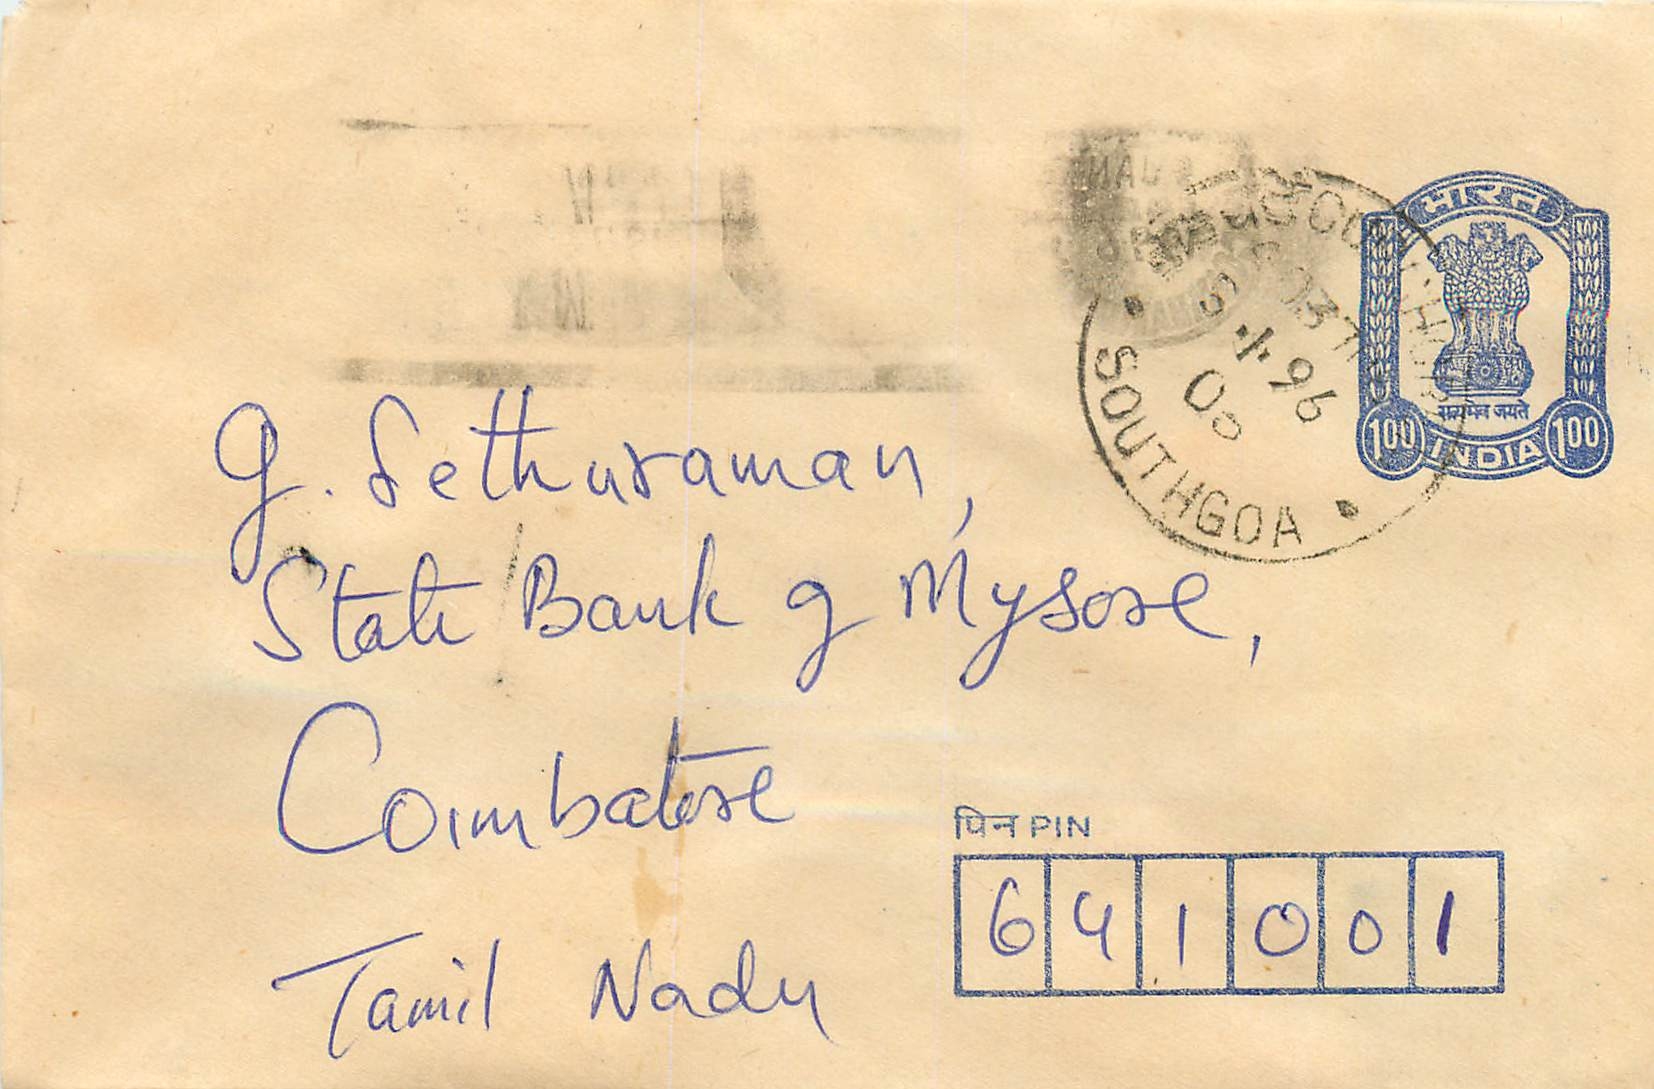 भारत
सत्यमेव जयते
100 INDIA 100
SOUTHGOA
G. Sethuraman,
State Bank of Mysore,
Coimbatore
Tamil Nadu
पिन PIN
6 4 1 0 0 1